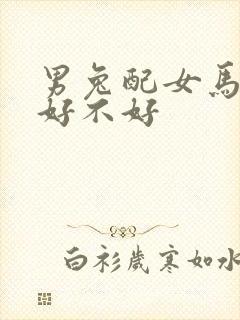 男兔配女馬
好不好
白衫歲寒如水